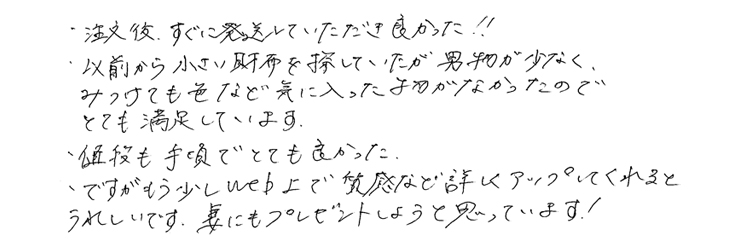 ・注文後、すぐに発送していただき良かった!!
・以前から小さい財布を探していたが男物が少なく、
みつけても色など気に入った物がなかったので
とても満足しています.
・値段も手頃でとても良かった.
・ですがもう少しWeb上で質感など詳しくアップしてくれると
うれしいです. 妻にもプレゼントしようと思っています!